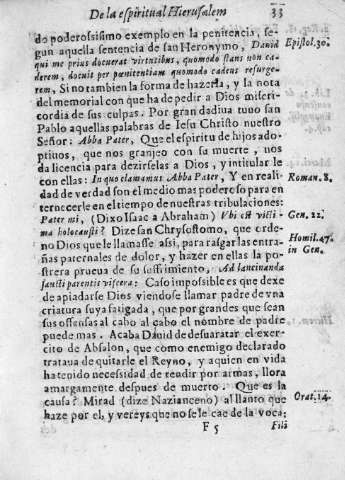 De la espiritual Hierusalem 33
do poderosissimo exemplo en la penitencia, se-
gun aquella sentencia de san Heronymo, David Epistol.30.
qui me prius docuerat virtutibus, quomodo stans non ca-
derem, docuit per pœnitentiam quomodo cadens resurge-
rem, Si no tambien la forma de hazerla, y la nota
del memorial con que ha de pedir a Dios miseri-
cordia de sus culpas. Por gran dadiua tuuo san
Pablo aquellas palabras de Iesu Christo nuestro
Señor: Abba Pater, Que el espiritu de hijos ado-
ptiuos, que nos granjeo con su muerte, nos
da licencia para dezirselas a Dios, y intitularle
con ellas: In quo clamamus Abba Pater, Y en reali- Roman. 8.
dad de verdad son el medio mas poderoso para en
ternecerle en el tiempo de nuestras tribulaciones:
Pater mi, (Dixo Isaac a Abraham) Vbi est victi- Gen. 22.
ma holocausti? Dize san Chrysostomo, que orde-
no Dios que le llamasse assi, para rasgar las entra- Homil.47.
ñas paternales de dolor, y hazer en ellas la po- in Gen.
strera prueua de su suffrimiento, Ad lancinanda
sancti parentis viscera: Caso impossible es que dexe
de apiadarse Dios viendose llamar padre de vna
criatura suya fatigada, que por grandes que sean
sus offensas al cabo al cabo el nombre de padre
puede mas. Acaba Dauid de desuaratar el exer-
cito de Absalon, que como enemigo declarado
trataua de quitarle el Reyno, y aquien en vida
ha tenido necessidad de rendir por armas, llora
amargamente despues de muerto. Que es la
causa? Mirad (dize Nazianceno) al llanto que Orat.14.
haze por el, y vereys que no se le cae de la voca:
F 5 Fili